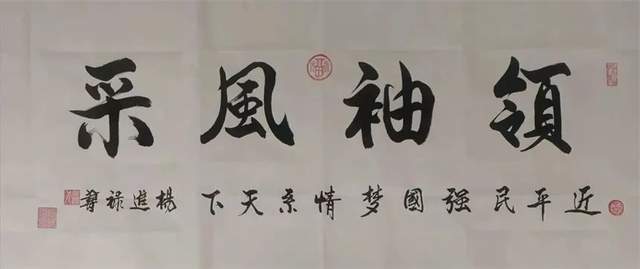 領袖風采
近平民强國梦情系天下 楊進禄書